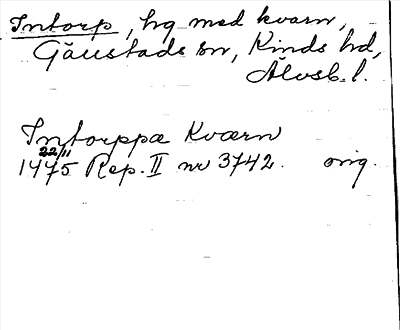 Intorp, hg med kvarn,
Gällstads sn, Kinds hd,
Älvsb. l.
Intorppæ Kværn
22/11
1475 Rep. II nr 3742. orig.